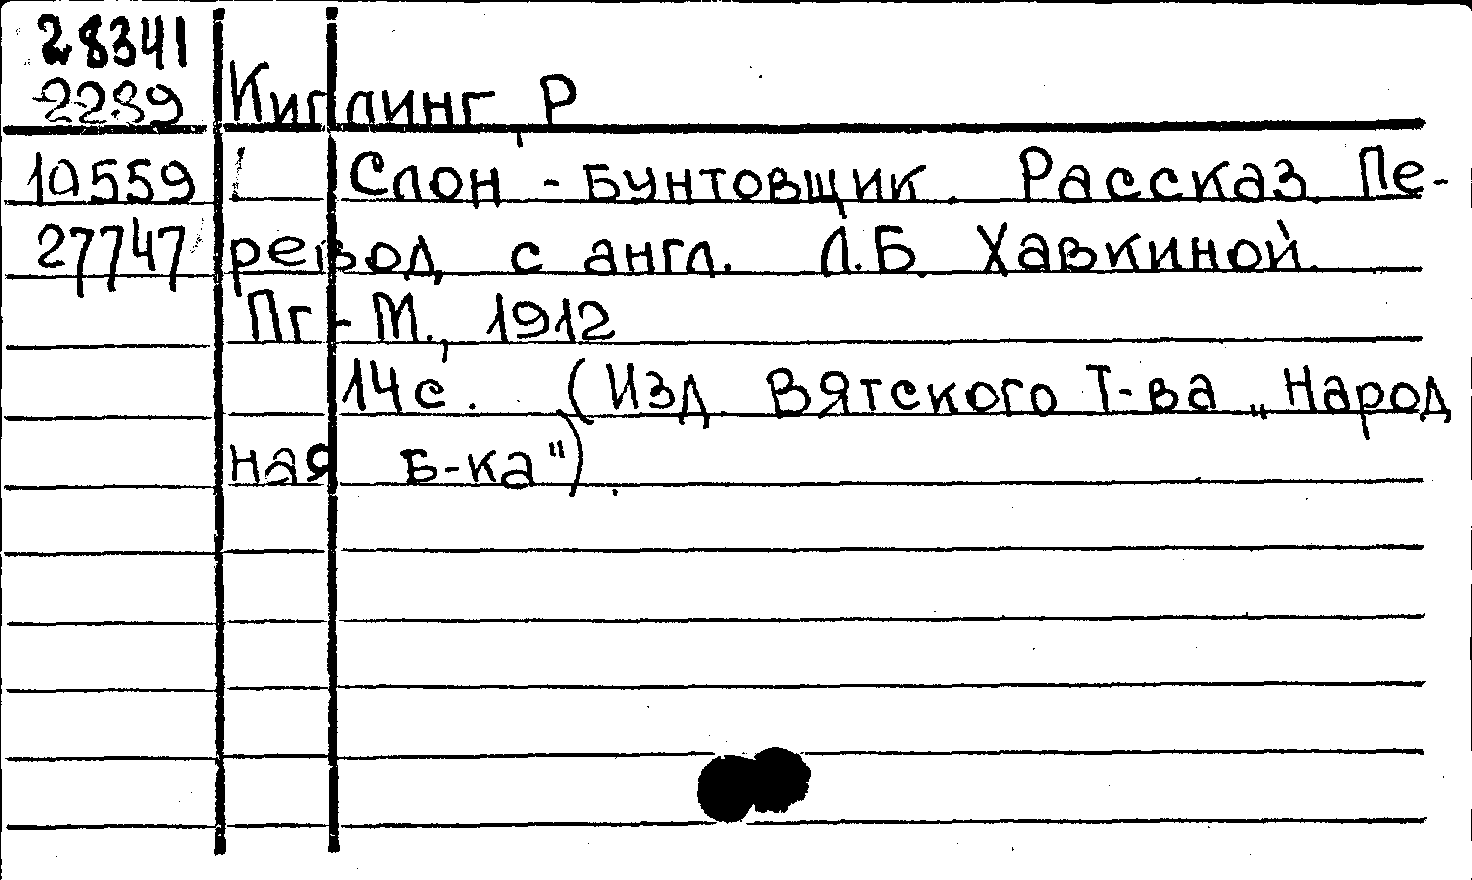 28341
2289 Киплинг, Р
10559 Слон - Бунтовщик. Рассказ. Пе-
27747 ревод с англ. Л.Б. Хавкиной.
Пг - М., 1912
14с. (Изд. Вятского Т-ва „Народ
ная Б-ка").